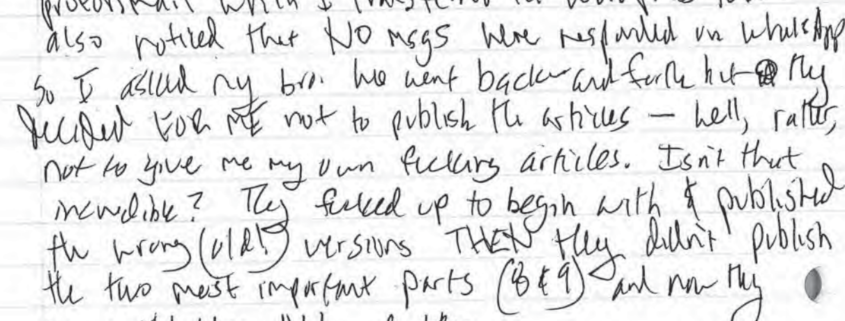 which I transferred
also noticed that NO msgs were responded on WhatsApp
So I asked my bro. We went back and forth but they
decided FOR ME not to publish the articles — well, rather,
not to give me my own fucking articles. Isn't that
incredible? They fucked up to begin with & published
the wrong (old!) versions THEN they didn't publish
the two most important parts (8 & 9) and now they